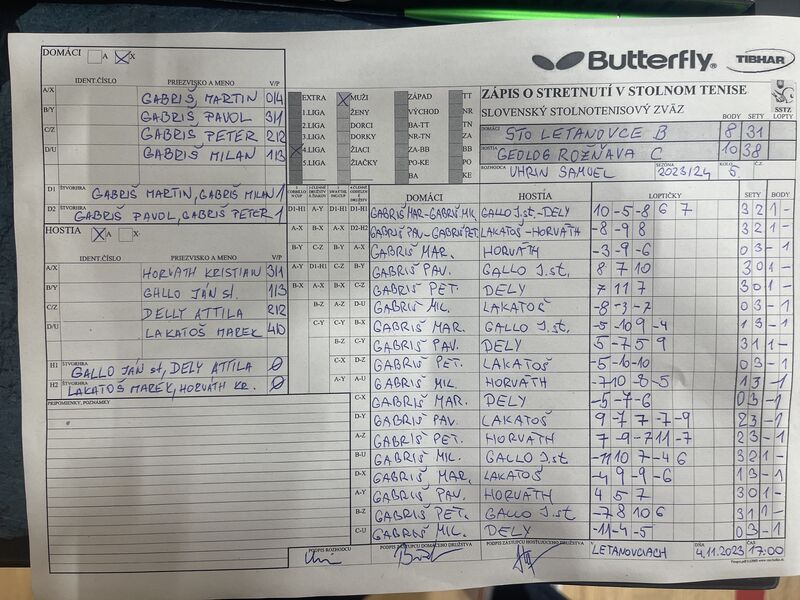 DOMÁCI A X
Butterfly® TIBHAR
IDENT.ČÍSLO PRIEZVISKO A MENO V/P
A/X GABRIŠ, MARTIN 0/4
B/Y GABRIŠ, PAVOL 3/1
C/Z GABRIŠ PETER 2/2
D/U GABRIŠ MILAN 1/3
D1 ŠTVORHRA GABRIŠ MARTIN, GABRIŠ MILAN 1
D2 ŠTVORHRA GABRIŠ PAVOL, GABRIŠ PETER 1
HOSTIA A X
IDENT.ČÍSLO PRIEZVISKO A MENO V/P
A/X HORVÁTH KRISTIAN 3/1
B/Y GALLO JÁN st. 1/3
C/Z DELLY ATTILA 2/2
D/U LAKATOŠ MAREK 4/0
H1 ŠTVORHRA GALLO JÁN st, DELY ATTILA 0
H2 ŠTVORHRA LAKATOŠ MAREK, HORVÁTH KR. 0
PRIPOMIENKY, POZNÁMKY
EXTRA MUŽI ZÁPAD TT
1.LIGA ŽENY VÝCHOD NR
2.LIGA DORCI BA-TT TN
3.LIGA DORKY NR-TN ZA
4.LIGA ŽIACI ZA-BB BB
5.LIGA ŽIAČKY PO-KE PO
BA KE
ZÁPIS O STRETNUTÍ V STOLNOM TENISE
SLOVENSKÝ STOLNOTENISOVÝ ZVÄZ SSTZ
BODY SETY LOPTY
DOMÁCI STO LETANOVCE B 8 31
HOSTIA GEOLOG ROŽŇAVA C 10 38
ROZHODCA UHRIN SAMUEL SEZÓNA 2023/24 KOLO 5 Č.Z.
DOMÁCI HOSTÍA LOPTIČKY SETY BODY
D1-H1 A-Y D1-H1 D1-H1 GABRIŠ MAR-GABRIŠ MIL GALLO J.st.-DELY 10 -5 -8 6 7 3 2 1 -
A-X B-X A-X D2-H2 GABRIŠ PAV-GABRIŠ PET LAKATOŠ-HORVÁTH -8 -9 8 3 2 1 -
B-Y C-Z B-Y A-X GABRIŠ MAR. HORVÁTH -3 -9 -6 0 3 - 1
A-Y D1-H1 C-Z B-Y GABRIŠ PAV. GALLO J.st. 8 7 10 3 0 1 -
B-X A-X D-X C-Z GABRIŠ PET. DELY 7 11 7 3 0 1 -
B-Z A-Z D-U GABRIŠ MIL. LAKATOŠ -8 -3 -7 0 3 - 1
C-Y C-Y B-X GABRIŠ MAR. GALLO J.st. -5 -10 9 -4 1 3 - 1
B-Z C-Y GABRIŠ PAV. DELY 5 -7 5 9 3 1 1 -
C-X D-Z GABRIŠ PET. LAKATOŠ -5 -10 -10 0 3 - 1
A-Y A-U GABRIŠ MIL. HORVÁTH -7 10 -8 -5 1 3 - 1
C-X GABRIŠ MAR. DELY -5 -7 -6 0 3 - 1
D-Y GABRIŠ PAV. LAKATOŠ 9 -7 7 -7 -9 2 3 - 1
A-Z GABRIŠ PET. HORVÁTH 7 -9 -7 11 -7 2 3 - 1
B-U GABRIŠ MIL. GALLO J.st -11 10 7 -4 6 3 2 1 -
D-X GABRIŠ MAR. LAKATOŠ -4 9 -9 -6 1 3 - 1
A-Y GABRIŠ PAV. HORVÁTH 4 5 7 3 0 1 -
B-Z GABRIŠ PET. GALLO J.st -7 8 10 6 3 1 1 -
C-U GABRIŠ MIL. DELY -11 -4 -5 0 3 - 1
PODPIS ROZHODCU PODPIS ZÁSTUPCU DOMÁCEHO DRUŽSTVA PODPIS ZÁSTUPCU HOSŤUJÚCEHO DRUŽSTVA V LETANOVCIACH DŇA 4.11.2023 ČAS 17:00